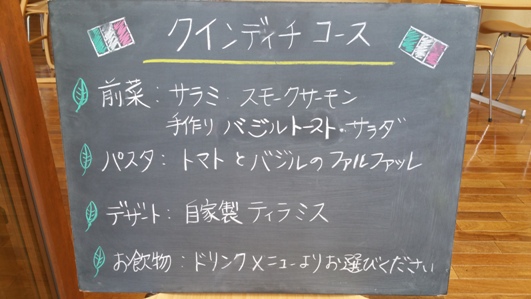 クインディチ コース
前菜：サラミ スモークサーモン
手作り バジルトースト・サラダ
パスタ：トマトとバジルのファルファッレ
デザート：自家製 ティラミス
お飲物：ドリンクメニューよりお選びください